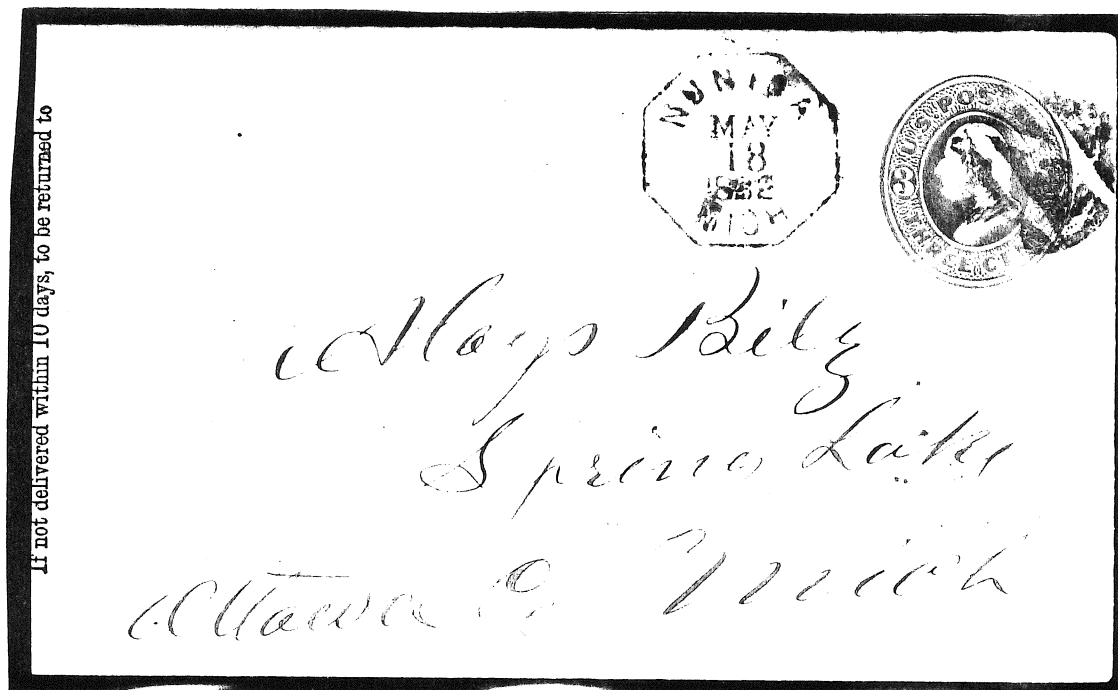 If not delivered within 10 days, to be returned to
NUNICA
MAY
18
1882
MICH
U.S. POS
THREE CT
3
Aloys Bilz
Spring Lake
Ottawa Co. Mich